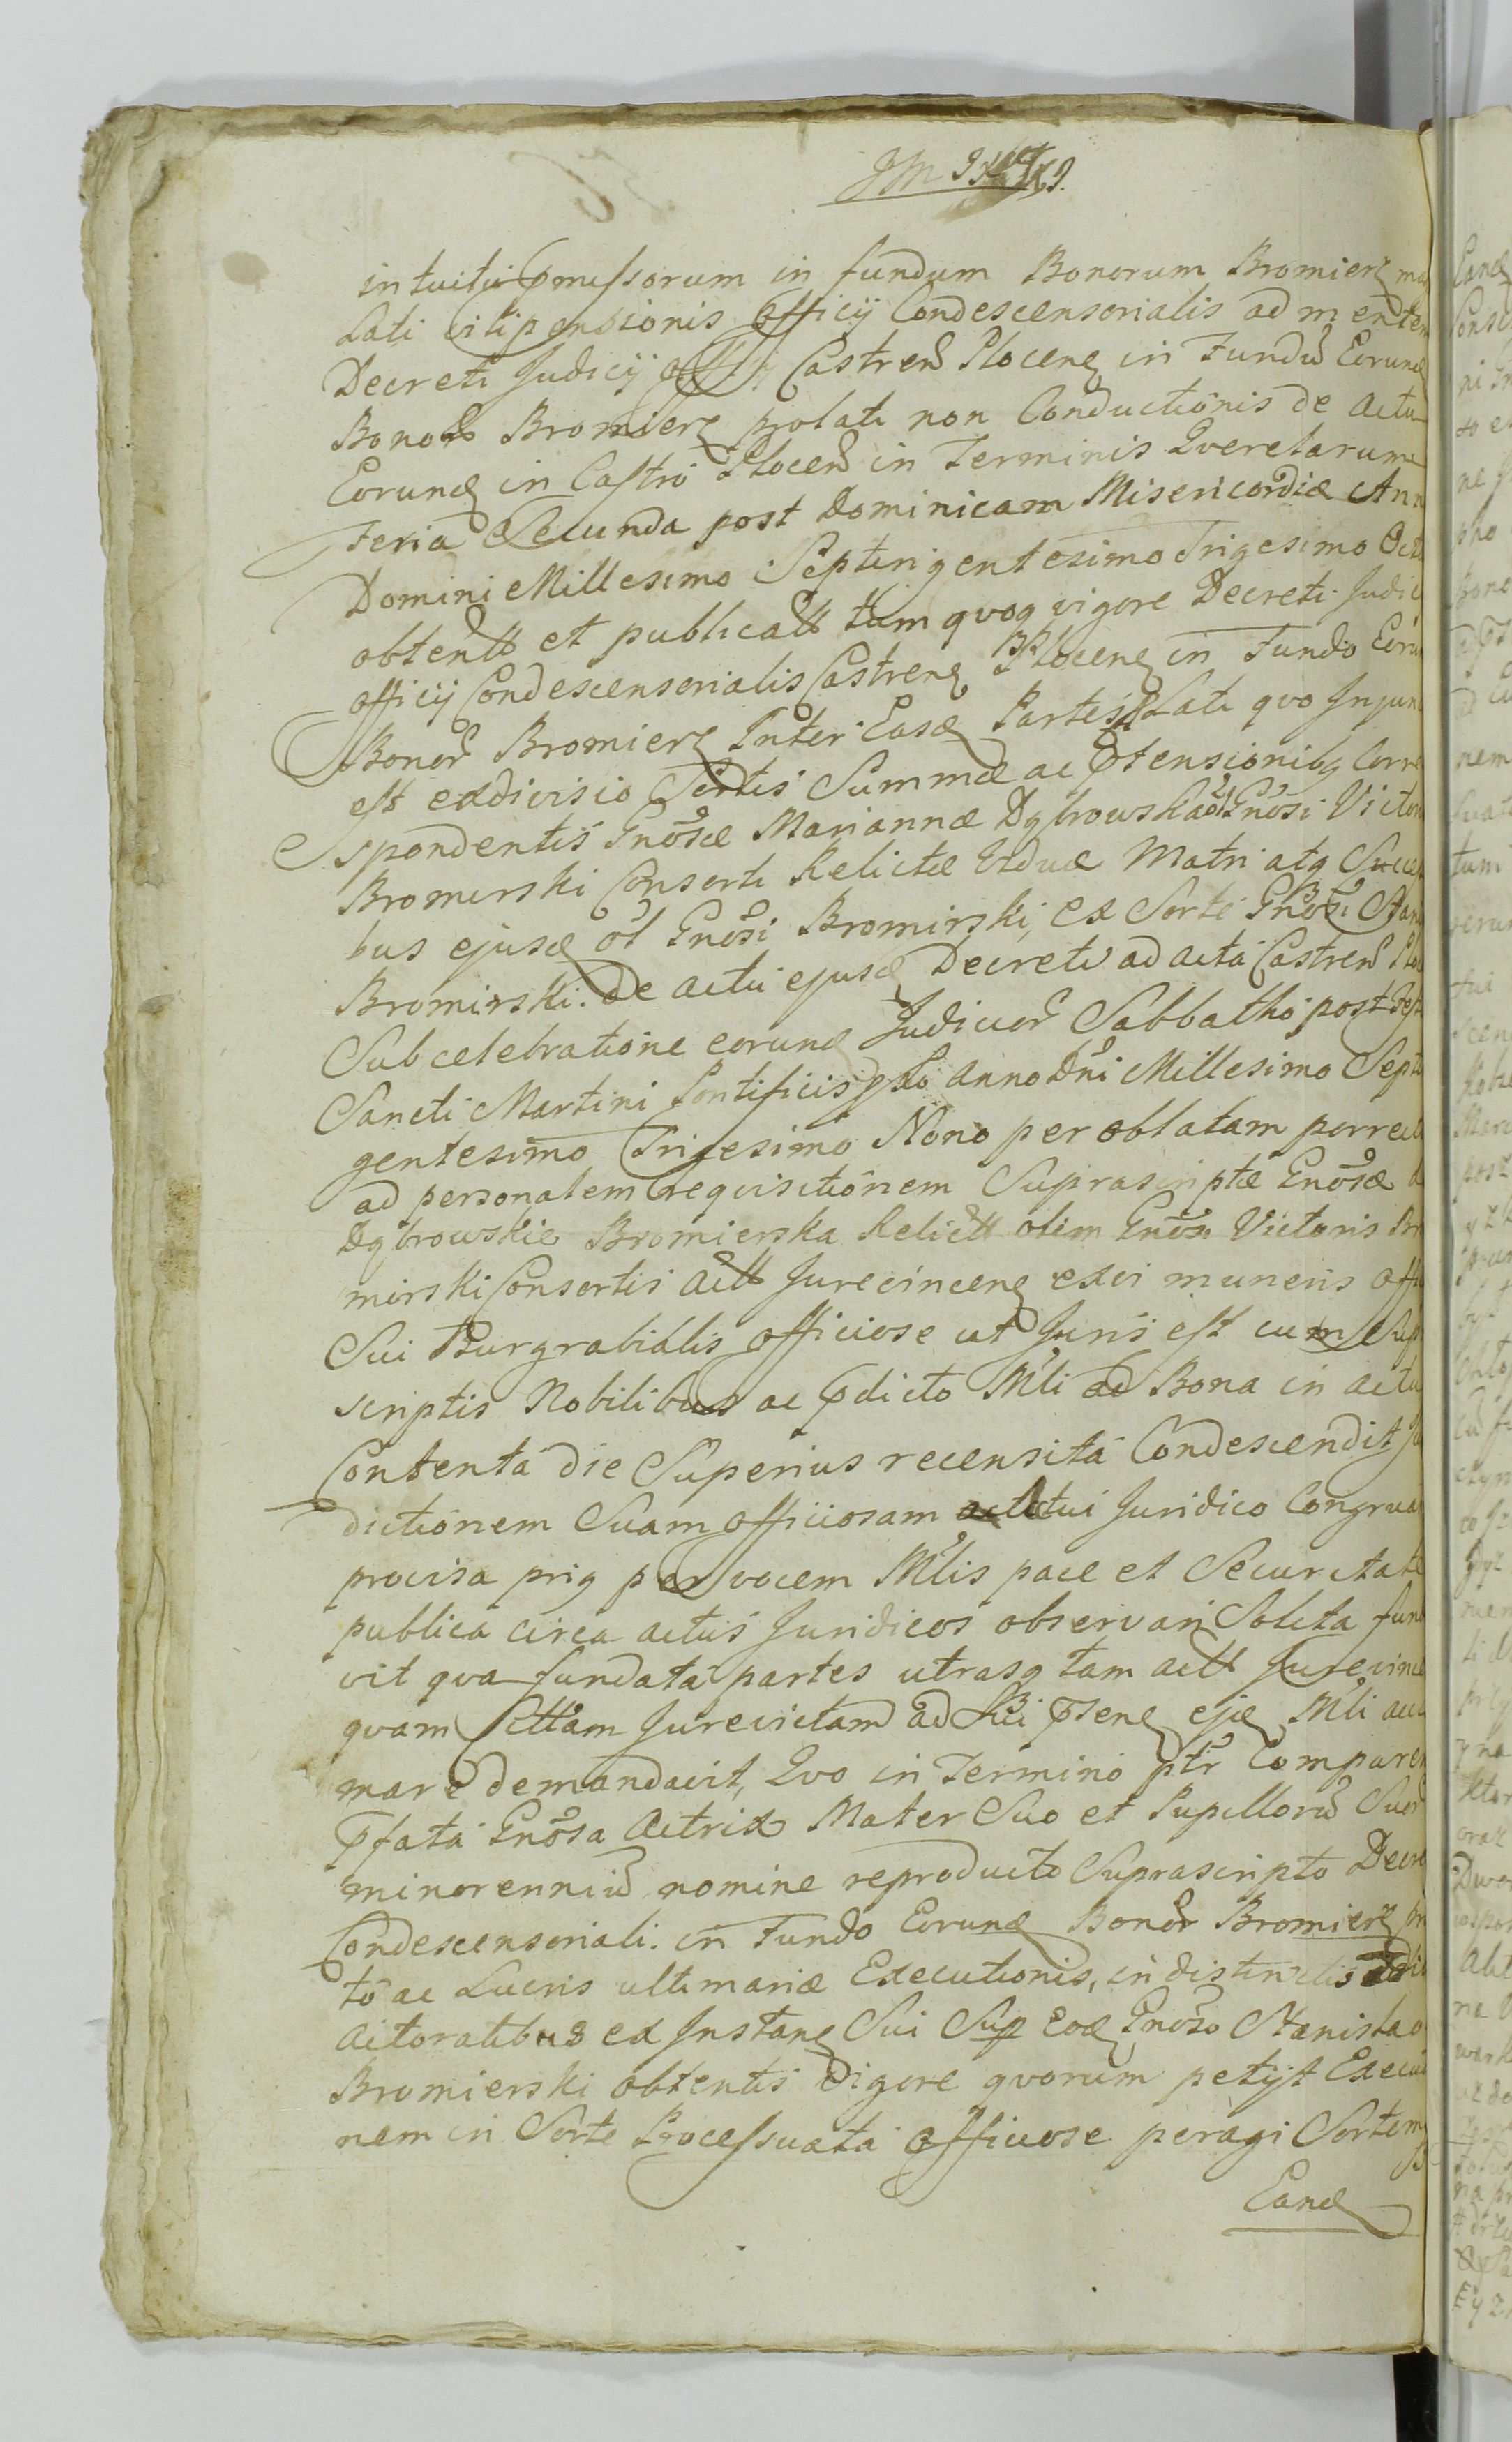 intuitu pmissorum in fundum Bonorum Bromierz
Lati vilipensionis Officij Condescensorialis ad mentem
Decreti Judicij Castren Plocen in Fundū Eorund
Bonor Bromierz prolati non Conductionis de actu
Eorund in Castro Plocen in Terminis Querelarum
Feria Secunda post Dominicam Misericordiæ Ann
Domini Millesimo Septingentesimo Trigesimo Oct
obtent et publicat tum quoq vigore Decreti Judic
officij Condescensorialis Castren Plocen in Fundo Eoru
Bonor Bromierz Inter Easd Partes Lati quo Injun
est exdivisio Sortis Summæ ac Ptensionibq Corre
spondentis Gnosæ Mariannæ Dąbrowska ol Gnosi Victor
Bromirski Consorti Relictæ Viduæ Matri atq Succes
bus ejusd ol Gnosi Bromirski, ex Sorte Gnosi Stan
Bromirski. De actu ejusd Decreti ad acta Castren Plo
Sub celebratione eorund Judicior Sabbatho post Fest
Sancti Martini Pontificis Anno Dni Millesimo Septi
gentesimo Trigesimo Nono per oblatam porrect
ad personalem requisitionem Suprascriptæ Gnosæ
Dąbrowskie Bromierska Relict olim Gnosi Victoris Bro
mirski Consortis act Jurevincen ex vi muneris offi
Sui Burgrabialis officiose ut Juris est cum Sup
scriptis Nobilibus ac pdicto Mli ad Bona in actu
Contenta die Superius recensita Condescendit Ju
dictionem Suam officiosam actui Juridico Congrua
provisa prig per vocem Mlis pace et Securitate
publica circa actus Juridicos observari Solita fund
vit qva fundata partes utrasq tam act Jurevince
quam Cittam Jurevictam ad Sui psen ejq Mli accla
mare demandavit, Qvo in Termino ptr Comparen
Pfata Gnosa Actrix Mater Suo et Pupillorū Suor
minorenniū nomine reproducto Suprascripto Decre
Condescensoriali. in Fundo Eorund Bonor Bromierz
to ac Lucris ultimariæ Executionis, in distinctis
actoratibus ex Instan Sui Sup Eod Gnoso Stanislao
Bromierski obtentis vigore qvorum petijt Execut
nem in Sorte Processuata officiose peragi Sortem
Eand